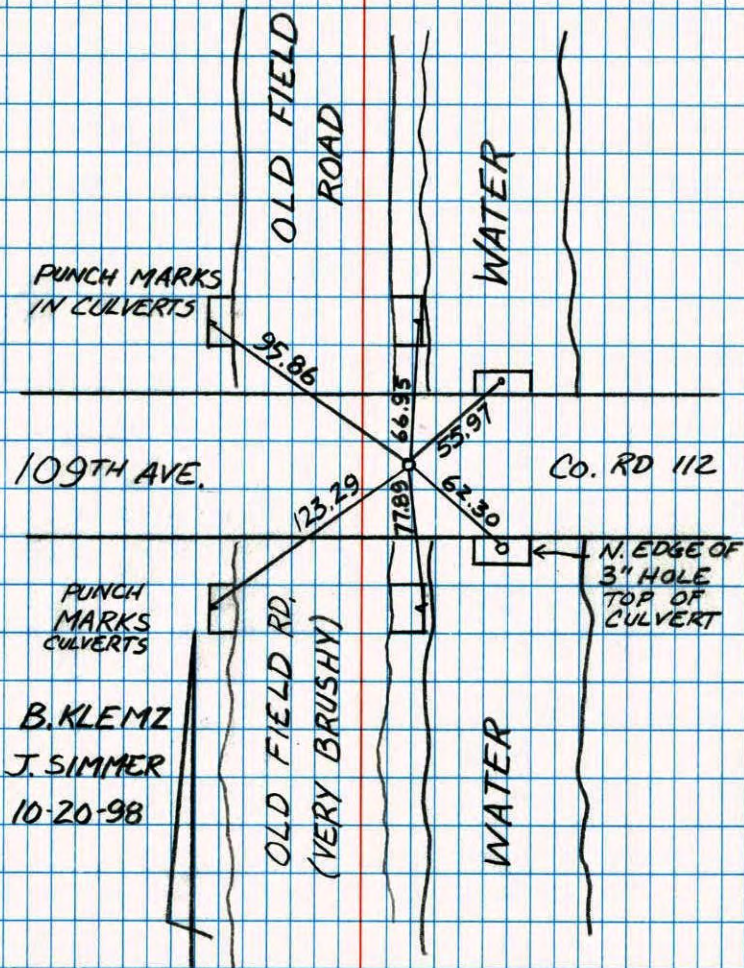 OLD FIELD
ROAD
WATER
PUNCH MARKS
IN CULVERTS
95.86
66.95
55.97
109TH AVE.
CO. RD 112
123.29
77.89
62.30
N. EDGE OF
3" HOLE
TOP OF
CULVERT
PUNCH
MARKS
CULVERTS
OLD FIELD RD.
(VERY BRUSHY)
WATER
B. KLEMZ
J. SIMMER
10-20-98